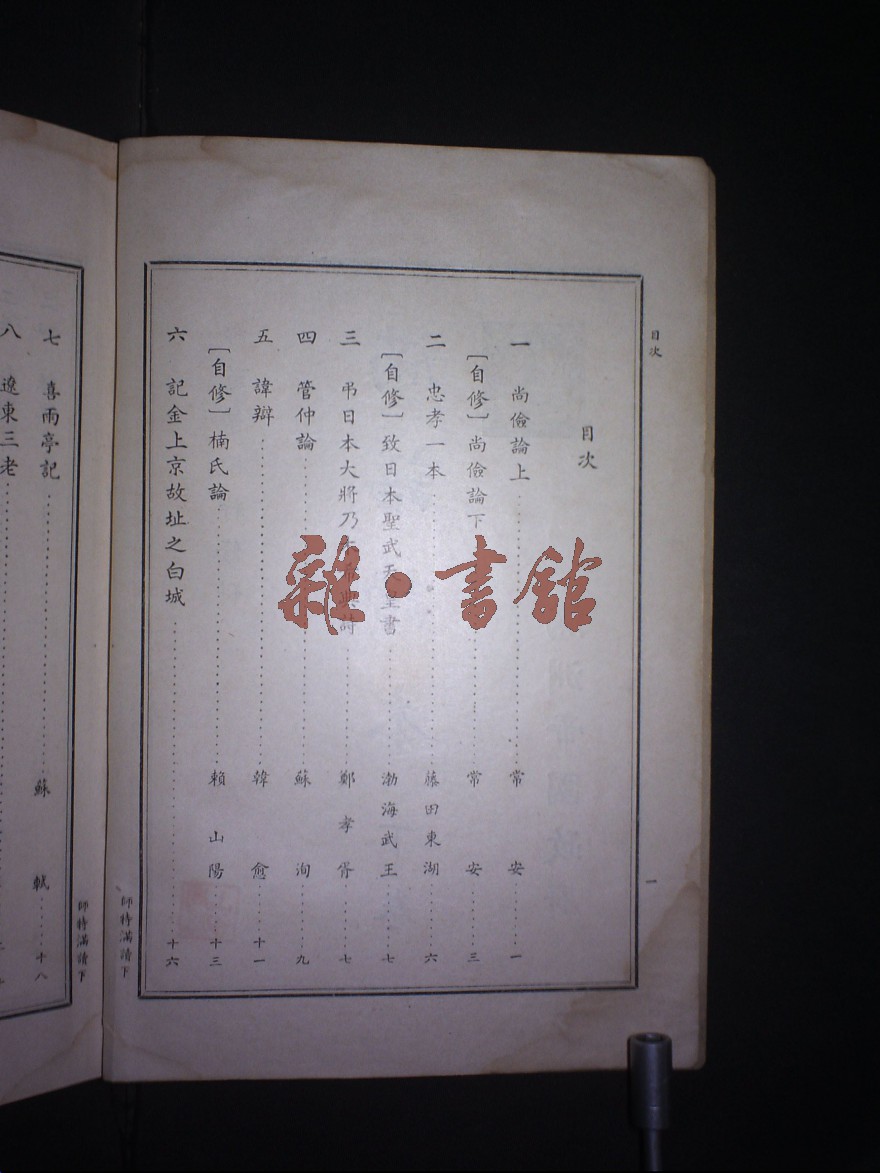 目次
一
目次
一 尚儉論上 常安 一
［自修］尚儉論下 常安 三
二 忠孝一本 藤田東湖 六
［自修］致日本聖武天皇書 渤海武王 七
三 弔日本大將乃 詩 鄭孝胥 七
四 管仲論 蘇洵 九
五 諱辯 韓愈 十一
［自修］楠氏論 賴山陽 十三
六 記金上京故址之白城 十六
師特滿讀下
七 喜雨亭記 蘇軾 十八
師特滿讀下
八 遼東三老
雜·書館